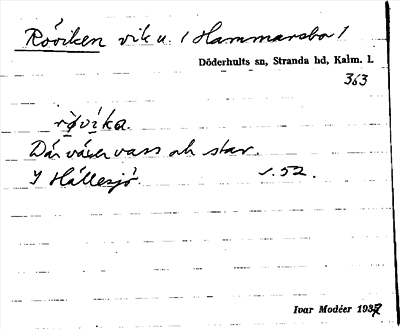 Röviken vik u. / Hammarsbo /
Döderhults sn, Stranda hd, Kalm. l.
363
røvika.
Där växer vass och starr.
I Hällesjö. s. 52.
Ivar Modéer 1937